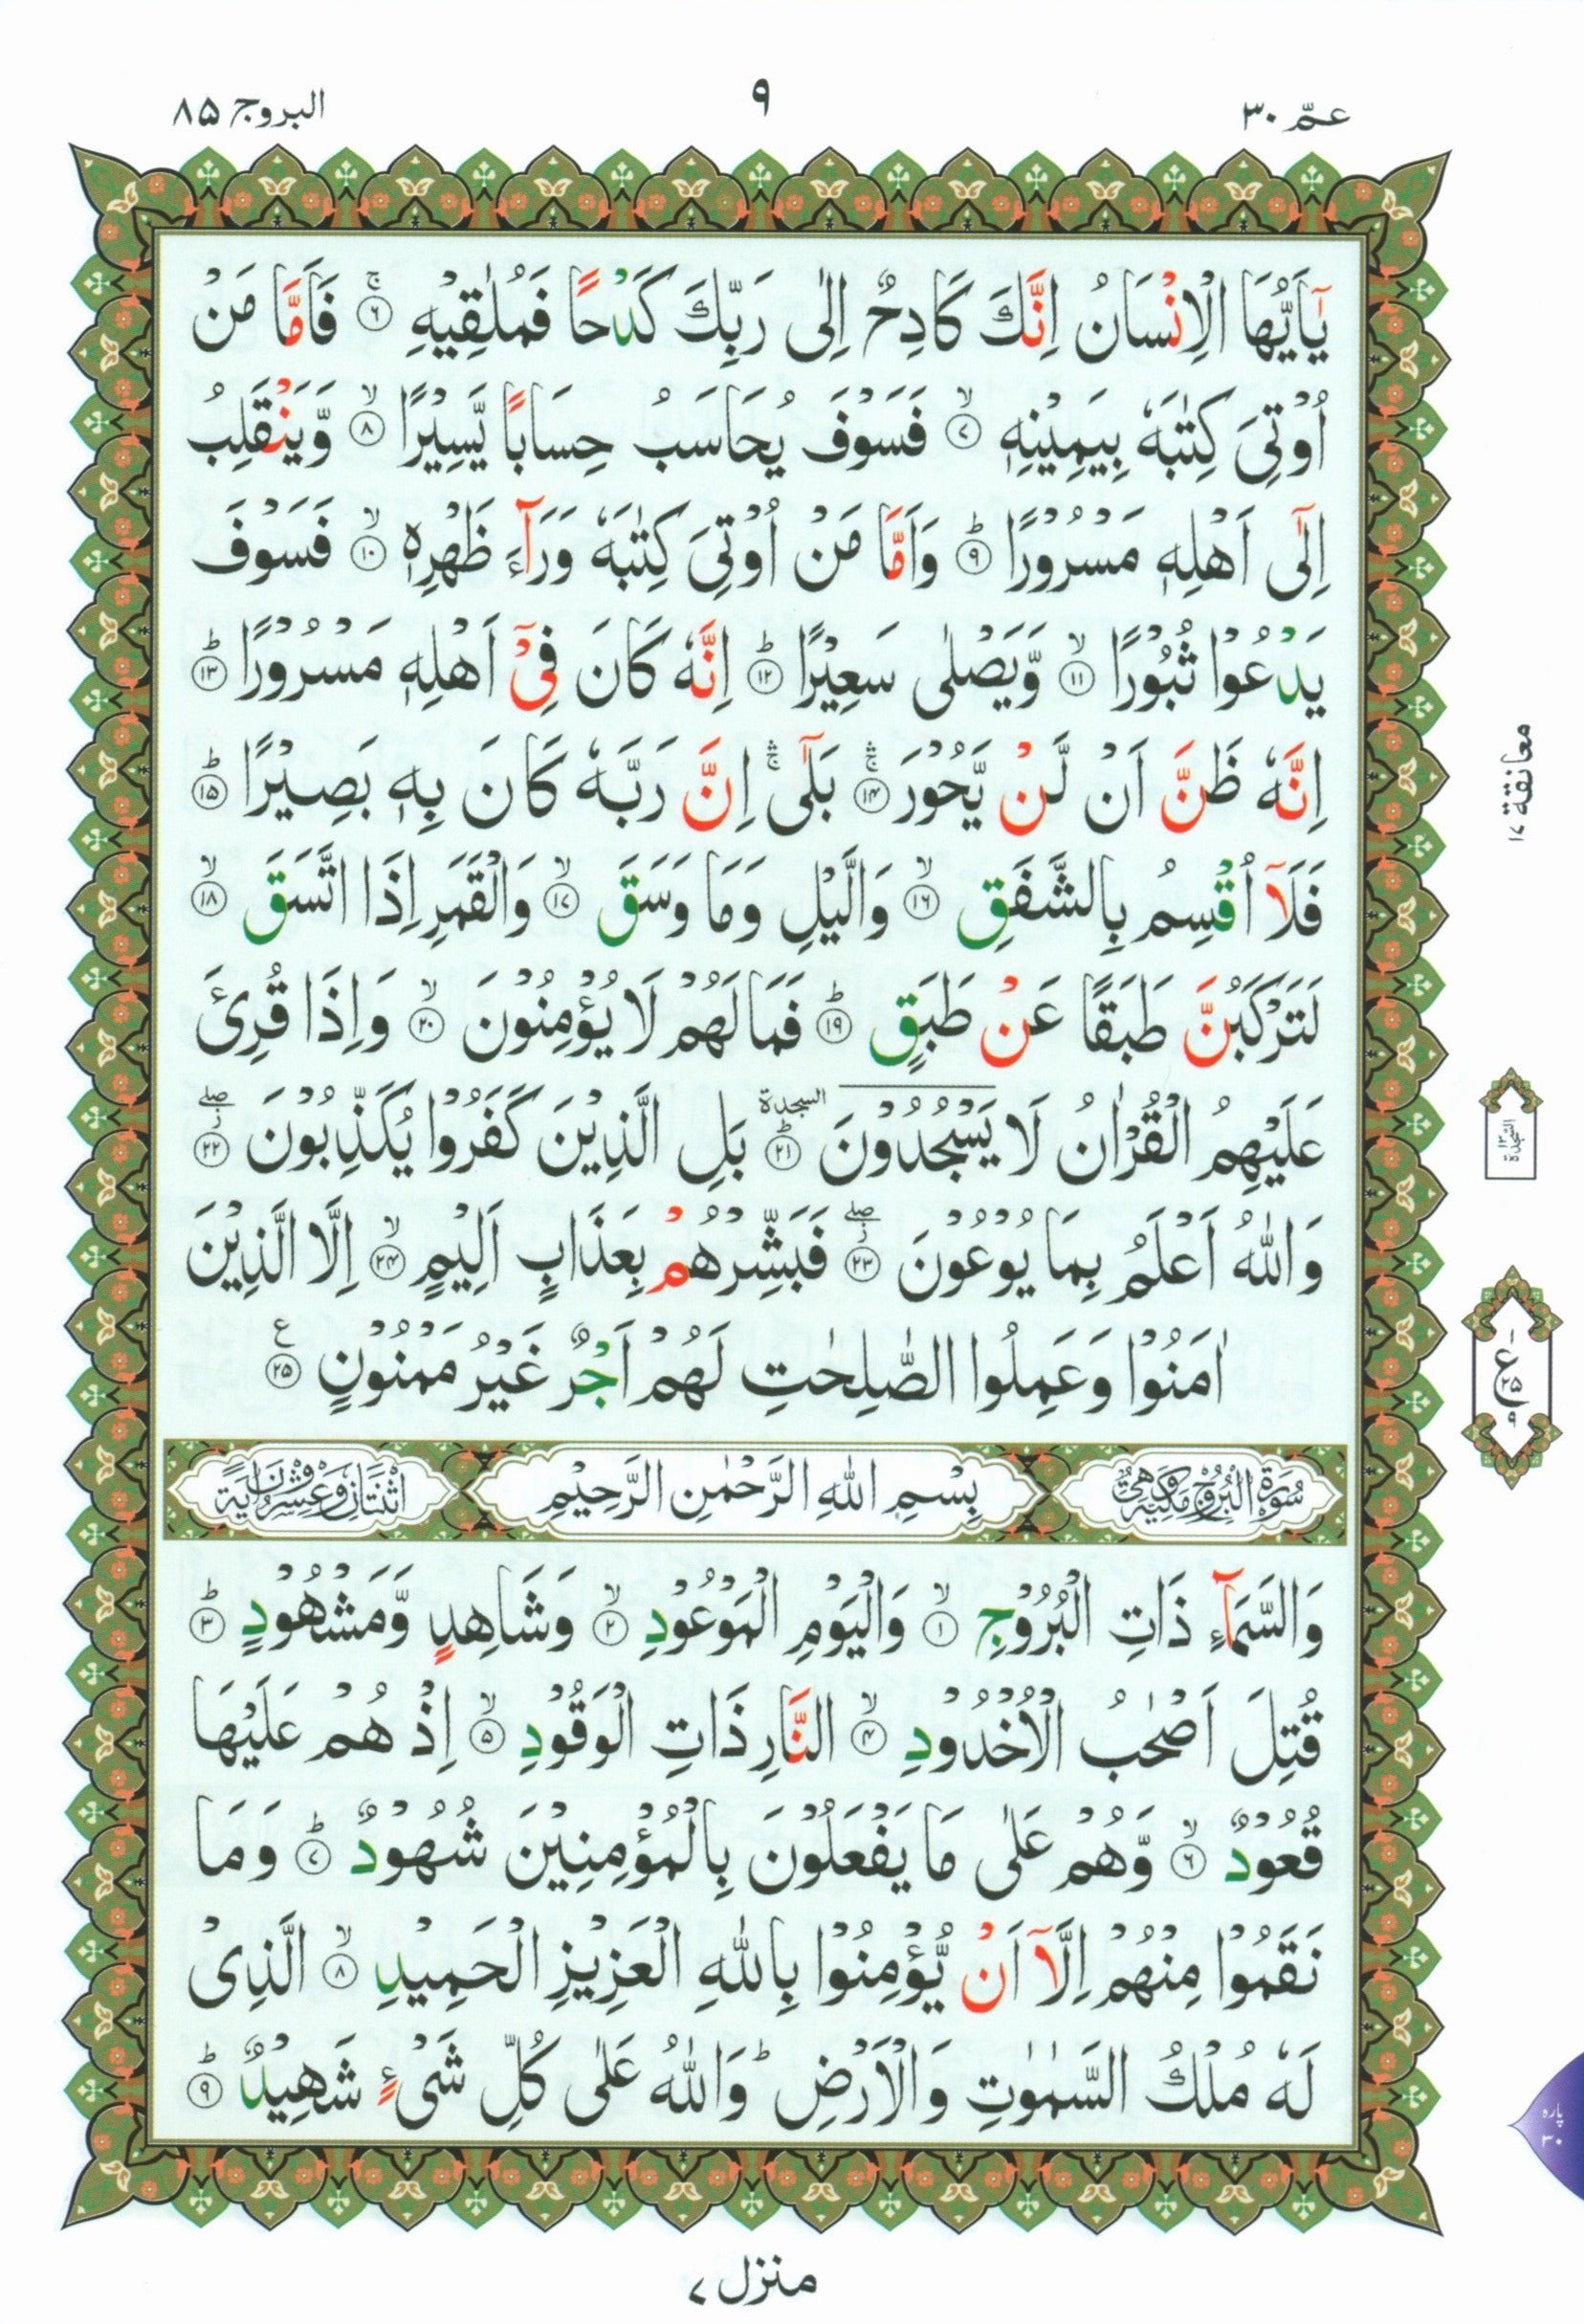 عمّ ٣٠
٩
البروج ٨٥
يٰٓاَيُّهَا الْاِنْسَانُ اِنَّكَ كَادِحٌ اِلٰى رَبِّكَ كَدْحًا فَمُلٰقِيْهِ ۚ ٦ فَاَمَّا مَنْ
اُوْتِىَ كِتٰبَهٗ بِيَمِيْنِهٖ ۙ ٧ فَسَوْفَ يُحَاسَبُ حِسَابًا يَّسِيْرًا ۙ ٨ وَّيَنْقَلِبُ
اِلٰٓى اَهْلِهٖ مَسْرُوْرًا ؕ ٩ وَاَمَّا مَنْ اُوْتِىَ كِتٰبَهٗ وَرَآءَ ظَهْرِهٖ ۙ ١٠ فَسَوْفَ
يَدْعُوْا ثُبُوْرًا ۙ ١١ وَّيَصْلٰى سَعِيْرًا ؕ ١٢ اِنَّهٗ كَانَ فِىْٓ اَهْلِهٖ مَسْرُوْرًا ؕ ١٣
اِنَّهٗ ظَنَّ اَنْ لَّنْ يَّحُوْرَ ۛۚ ١٤ بَلٰٓى ۛۚ اِنَّ رَبَّهٗ كَانَ بِهٖ بَصِيْرًا ؕ ١٥
فَلَآ اُقْسِمُ بِالشَّفَقِ ۙ ١٦ وَالَّيْلِ وَمَا وَسَقَ ۙ ١٧ وَالْقَمَرِ اِذَا اتَّسَقَ ۙ ١٨
لَتَرْكَبُنَّ طَبَقًا عَنْ طَبَقٍ ؕ ١٩ فَمَا لَهُمْ لَا يُؤْمِنُوْنَ ۙ ٢٠ وَاِذَا قُرِئَ
عَلَيْهِمُ الْقُرْاٰنُ لَا يَسْجُدُوْنَ السجدة ؕ ٢١ بَلِ الَّذِيْنَ كَفَرُوْا يُكَذِّبُوْنَ ز ۖ ٢٢
وَاللّٰهُ اَعْلَمُ بِمَا يُوْعُوْنَ ز ۖ ٢٣ فَبَشِّرْهُمْ بِعَذَابٍ اَلِيْمٍ ۙ ٢٤ اِلَّا الَّذِيْنَ
اٰمَنُوْا وَعَمِلُوا الصّٰلِحٰتِ لَهُمْ اَجْرٌ غَيْرُ مَمْنُوْنٍ ع ٢٥
سُوْرَةُ الْبُرُوْجِ مَكِّيَّةٌ وَّهِىَ
بِسْمِ اللّٰهِ الرَّحْمٰنِ الرَّحِيْمِ
اثْنَتَانِ وَعِشْرُوْنَ اٰيَةً
وَالسَّمَآءِ ذَاتِ الْبُرُوْجِ ۙ ١ وَالْيَوْمِ الْمَوْعُوْدِ ۙ ٢ وَشَاهِدٍ وَّمَشْهُوْدٍ ؕ ٣
قُتِلَ اَصْحٰبُ الْاُخْدُوْدِ ۙ ٤ النَّارِ ذَاتِ الْوَقُوْدِ ۙ ٥ اِذْ هُمْ عَلَيْهَا
قُعُوْدٌ ۙ ٦ وَّهُمْ عَلٰى مَا يَفْعَلُوْنَ بِالْمُؤْمِنِيْنَ شُهُوْدٌ ؕ ٧ وَمَا
نَقَمُوْا مِنْهُمْ اِلَّآ اَنْ يُّؤْمِنُوْا بِاللّٰهِ الْعَزِيْزِ الْحَمِيْدِ ۙ ٨ الَّذِىْ
لَهٗ مُلْكُ السَّمٰوٰتِ وَالْاَرْضِ ؕ وَاللّٰهُ عَلٰى كُلِّ شَىْءٍ شَهِيْدٌ ؕ ٩
معانقة ١٧
السجدة ١٣
ع ٢٥ ٩
پاره ٣٠
منزل ٧